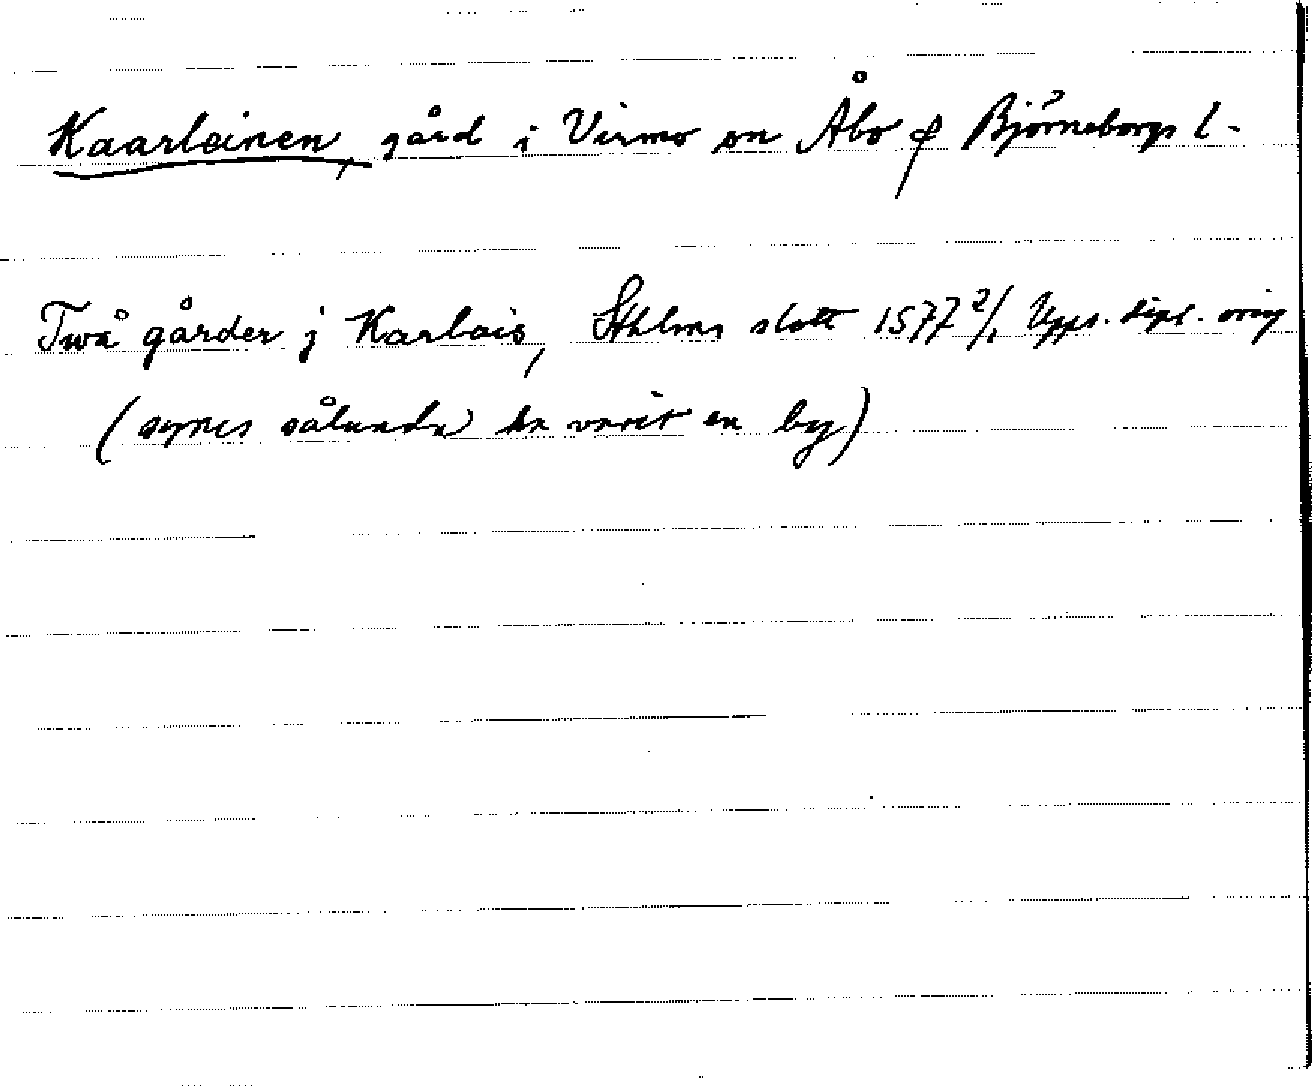 Kaarleinen, gård i Virmo sn Åbo o Björneborgs l.
Twå gårder j Karlais, Sthlms slott 1577 2/1 Upps. dipl. orig
(synes sålunda ha varit en by)